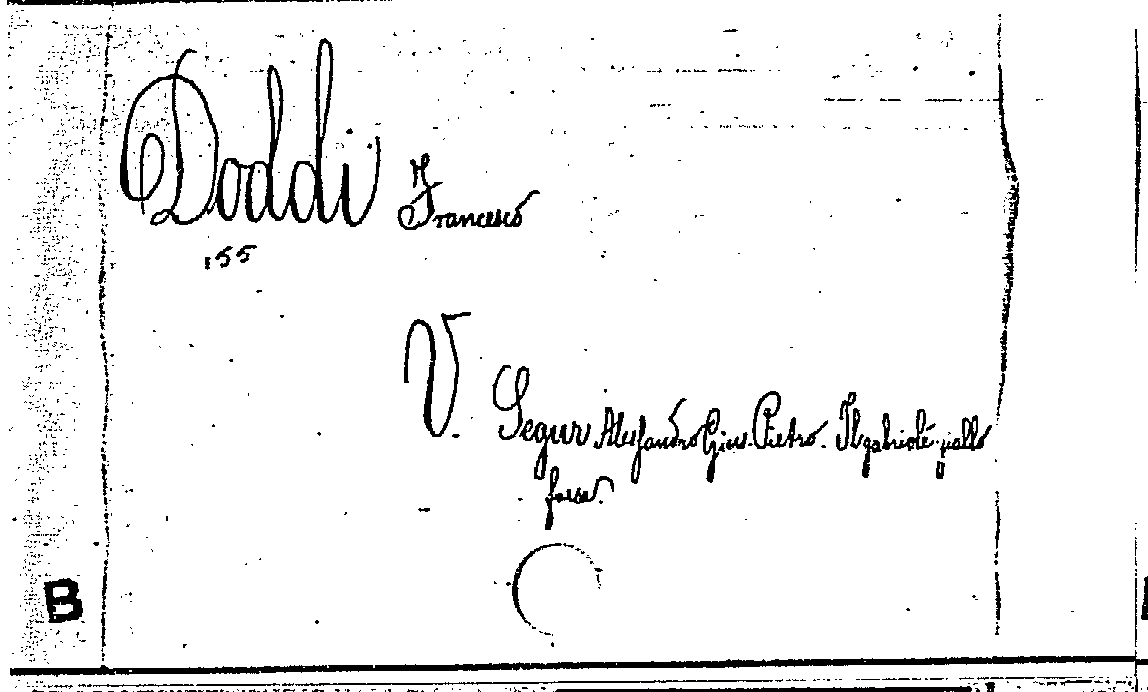 Doddi Francesco
155
V. Segur Alessandro Gius. Pietro. Il gabriolé giallo
farsa.
B